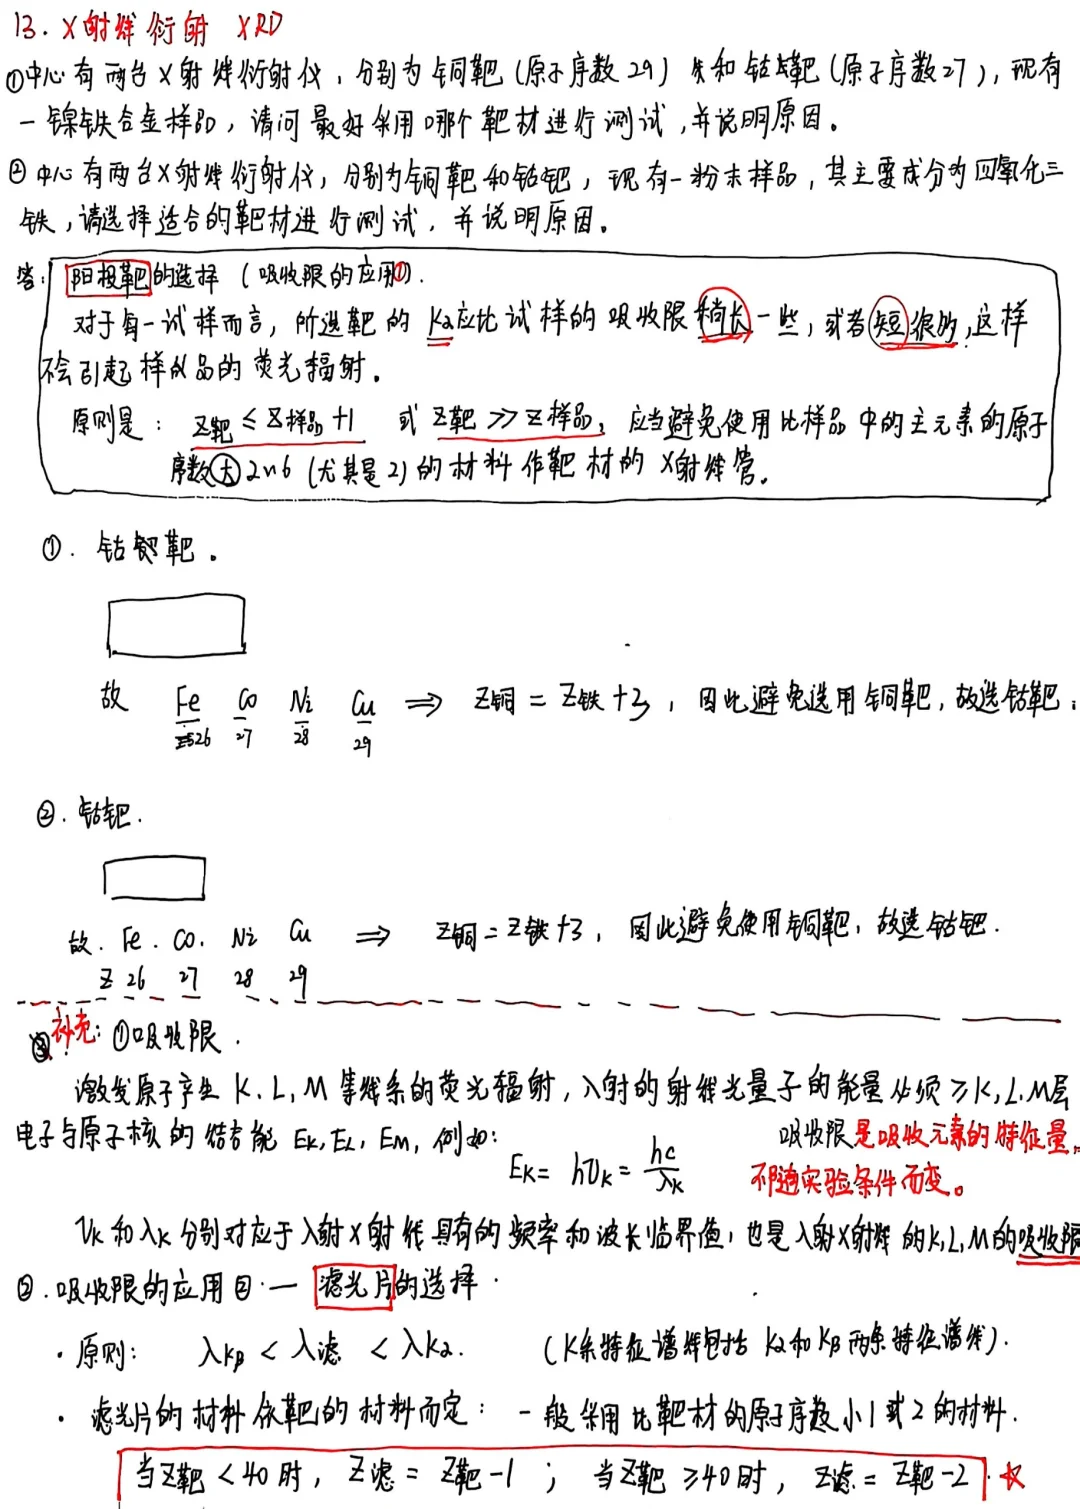 13. X射线衍射 XRD
①中心有两台X射线衍射仪，分别为铜靶(原子序数29)和钴靶(原子序数27)，现有
一镍铁合金样品，请问最好采用哪个靶材进行测试，并说明原因。
②中心有两台X射线衍射仪，分别为铜靶和钴靶，现有一粉末样品，其主要成分为四氧化三
铁，请选择适合的靶材进行测试，并说明原因。
答：阳极靶的选择(吸收限的应用①).
对于每一试样而言，所选靶的Kα应比试样的吸收限稍长一些，或者短很多，这样
不会引起样品的荧光辐射。
原则是：Z靶 ≤ Z样品+1 或 Z靶 >> Z样品，应当避免使用比样品中的主元素的原子
序数大2~6(尤其是2)的材料作靶材的X射线管。
①. 钴靶。
故 Fe Co Ni Cu ⇒ Z铜 = Z铁+3，因此避免选用铜靶，故选钴靶；
26 27 28 29
②. 钴靶.
故. Fe. Co. Ni Cu ⇒ Z铜=Z铁+3，因此避免使用铜靶，故选钴靶.
Z 26 27 28 29
补充：①吸收限.
激发原子产生K、L、M等线系的荧光辐射，入射的射线光量子的能量必须≥K,L,M层
电子与原子核的结合能 EK, EL, EM, 例如：
EK = hυK = hc/λK
吸收限是吸收元素的特征量，
不随实验条件而变。
υK和λK分别对应于入射X射线具有的频率和波长临界值，也是入射X射线的K,L,M的吸收限
②. 吸收限的应用②. — 滤光片的选择.
· 原则： λKβ < λ滤 < λKα. (K系特征谱线包括Kα和Kβ两条特征谱线).
· 滤光片的材料依靶的材料而定：一般采用比靶材的原子序数小1或2的材料.
当Z靶<40时，Z滤 = Z靶-1； 当Z靶≥40时，Z滤 = Z靶-2.